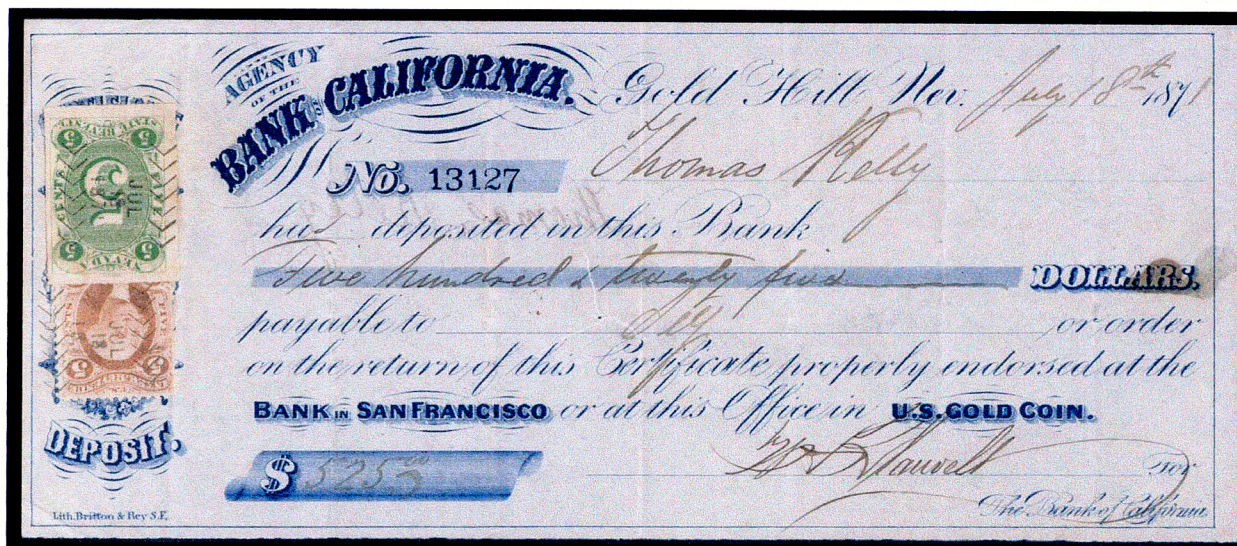 AGENCY
OF THE
BANK OF CALIFORNIA.
Gold Hill Nev. July 18th 1871
No. 13127
Thomas Kelly
has deposited in this Bank
Five hundred & twenty five DOLLARS.
payable to Self or order
on the return of this Certificate properly endorsed at the
BANK IN SAN FRANCISCO or at this Office in U.S. GOLD COIN.
$ 525
For
The Bank of California
DEPOSIT.
Lith. Britton & Rey S.F.
5
5
CENTS
5
JUL
5
5
JUL
18
5
5